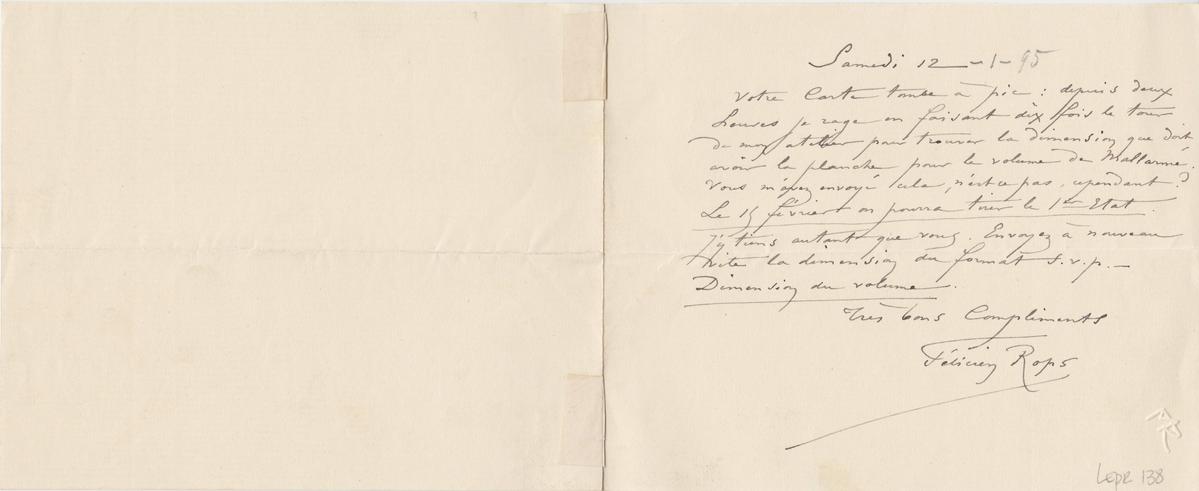 Samedi 12 - 1 - 95
Votre Carte tombe à pic : depuis deux
heures je rage en faisant dix fois le tour
de mon atelier pour trouver la dimension que doit
avoir la planche pour le volume de Mallarmé.
Vous m'avez envoyé cela, n'est ce pas, cependant ?
Le 15 février on pourra tirer le 1er Etat.
J'y tiens autant que vous. Envoyez à nouveau
vite la dimension du format s.v.p. —
Dimension du volume.
Très bons Compliments
Félicien Rops
LEpR 138